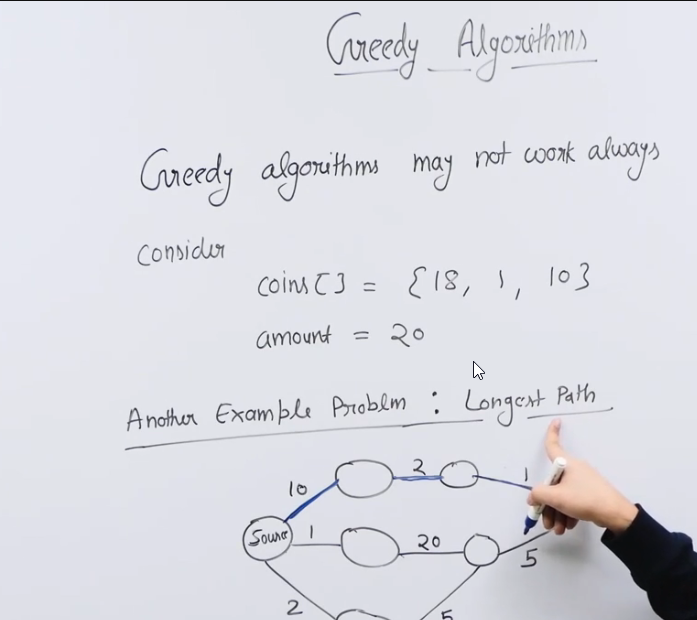 Greedy Algorithms
Greedy algorithms may not work always
consider
coins[] = {18, 1, 10}
amount = 20
Another Example Problm : Longest Path
10 2 1
Source 1 20 5
2 5